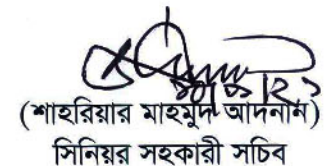 (শাহরিয়ার মাহমুদ আদনান)
সিনিয়র সহকারী সচিব